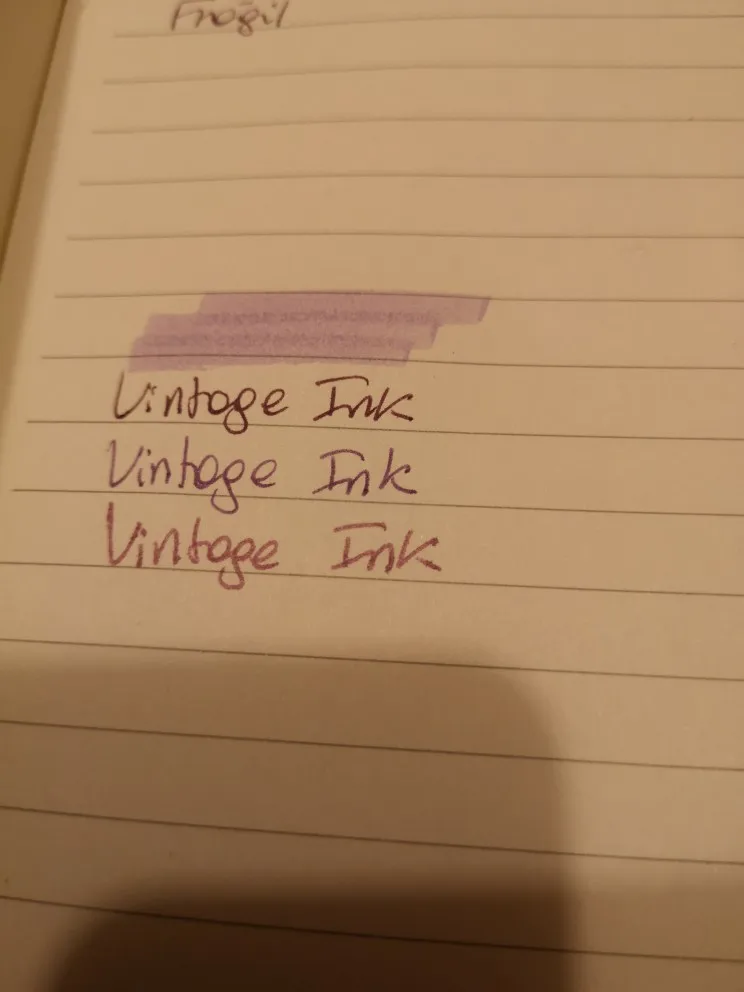 Fragil
Vintage Ink
Vintage Ink
Vintage Ink